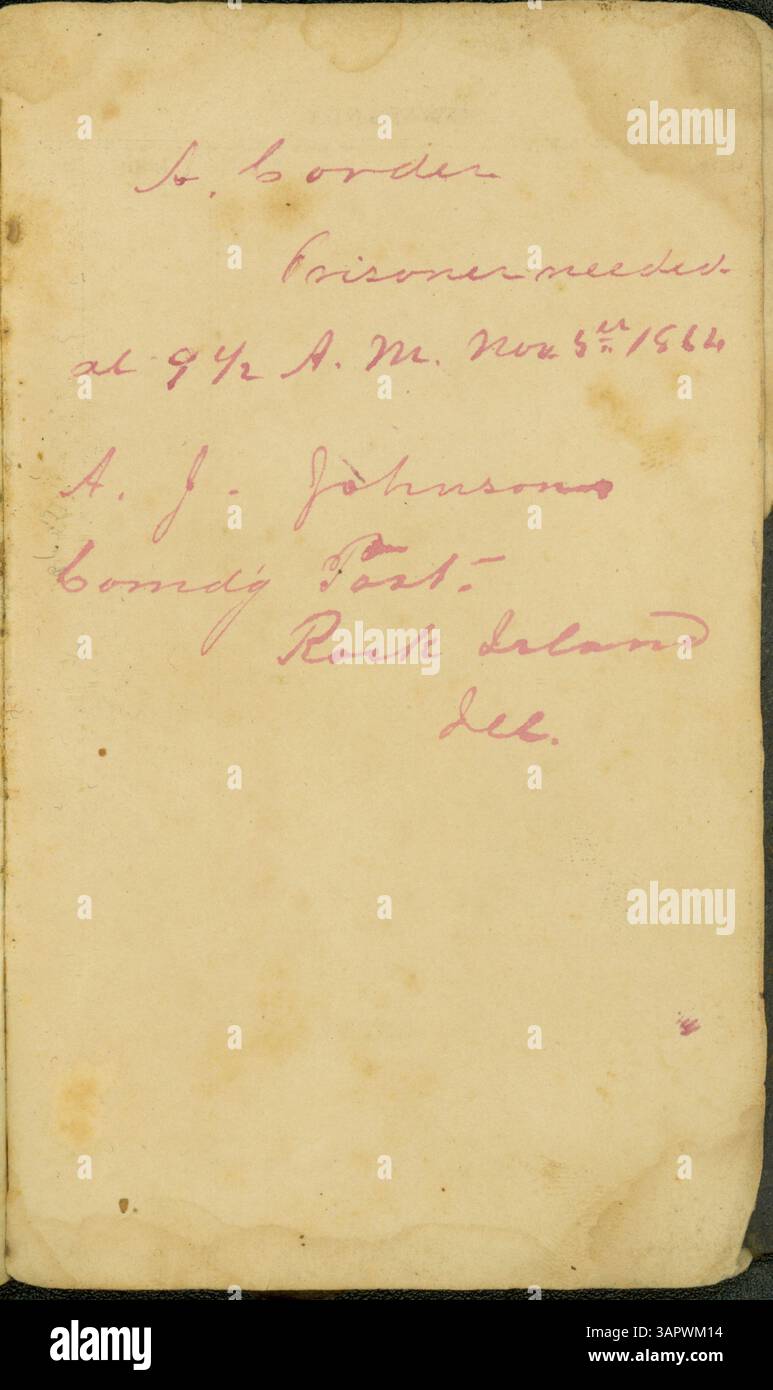 A. Corder
Prisoner needed
at 9 1/2 A. M. Nov 5th 1864
A. J. Johnson
Comd'g Post.
Rock Island
Ill.
alamy
alamy
alamy
Image ID: 3APWM14
www.alamy.com